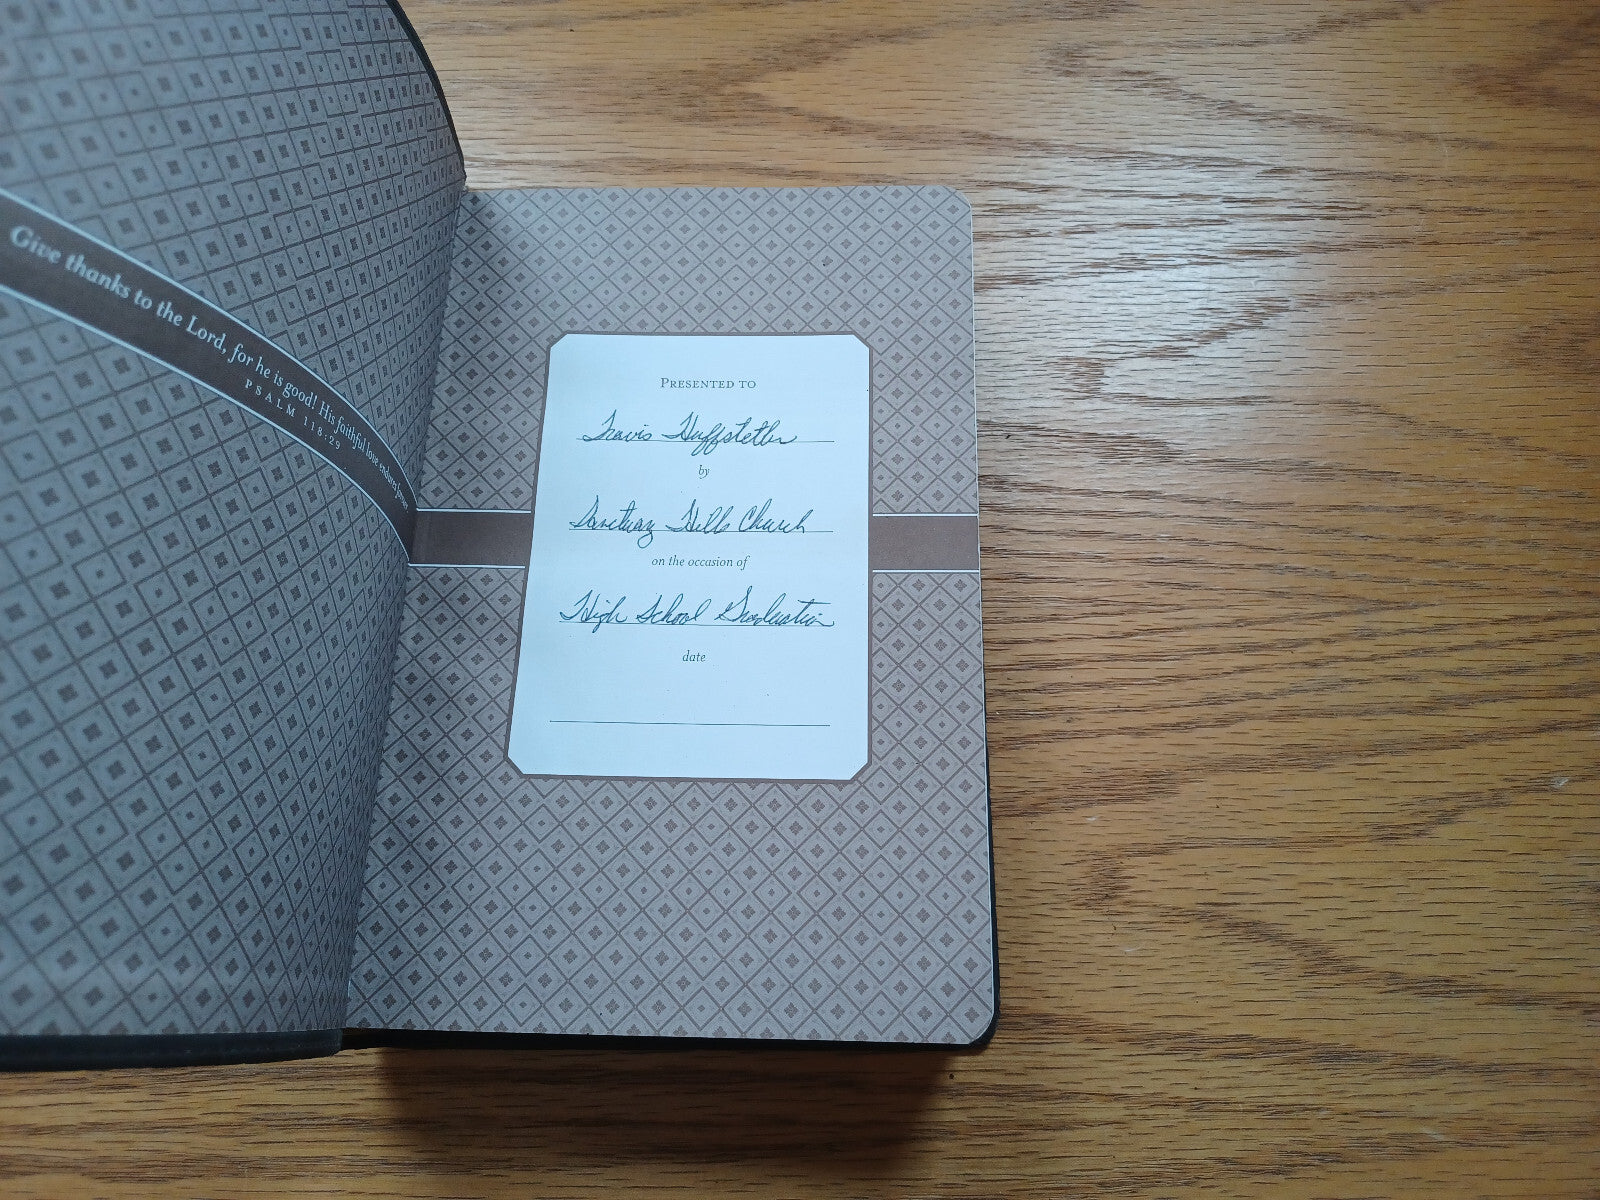 Give thanks to the Lord, for he is good! His faithful love endures forever.
PSALM 118:29
PRESENTED TO
Travis Huffstetler
by
Sanctuary Hills Church
on the occasion of
High School Graduation
date